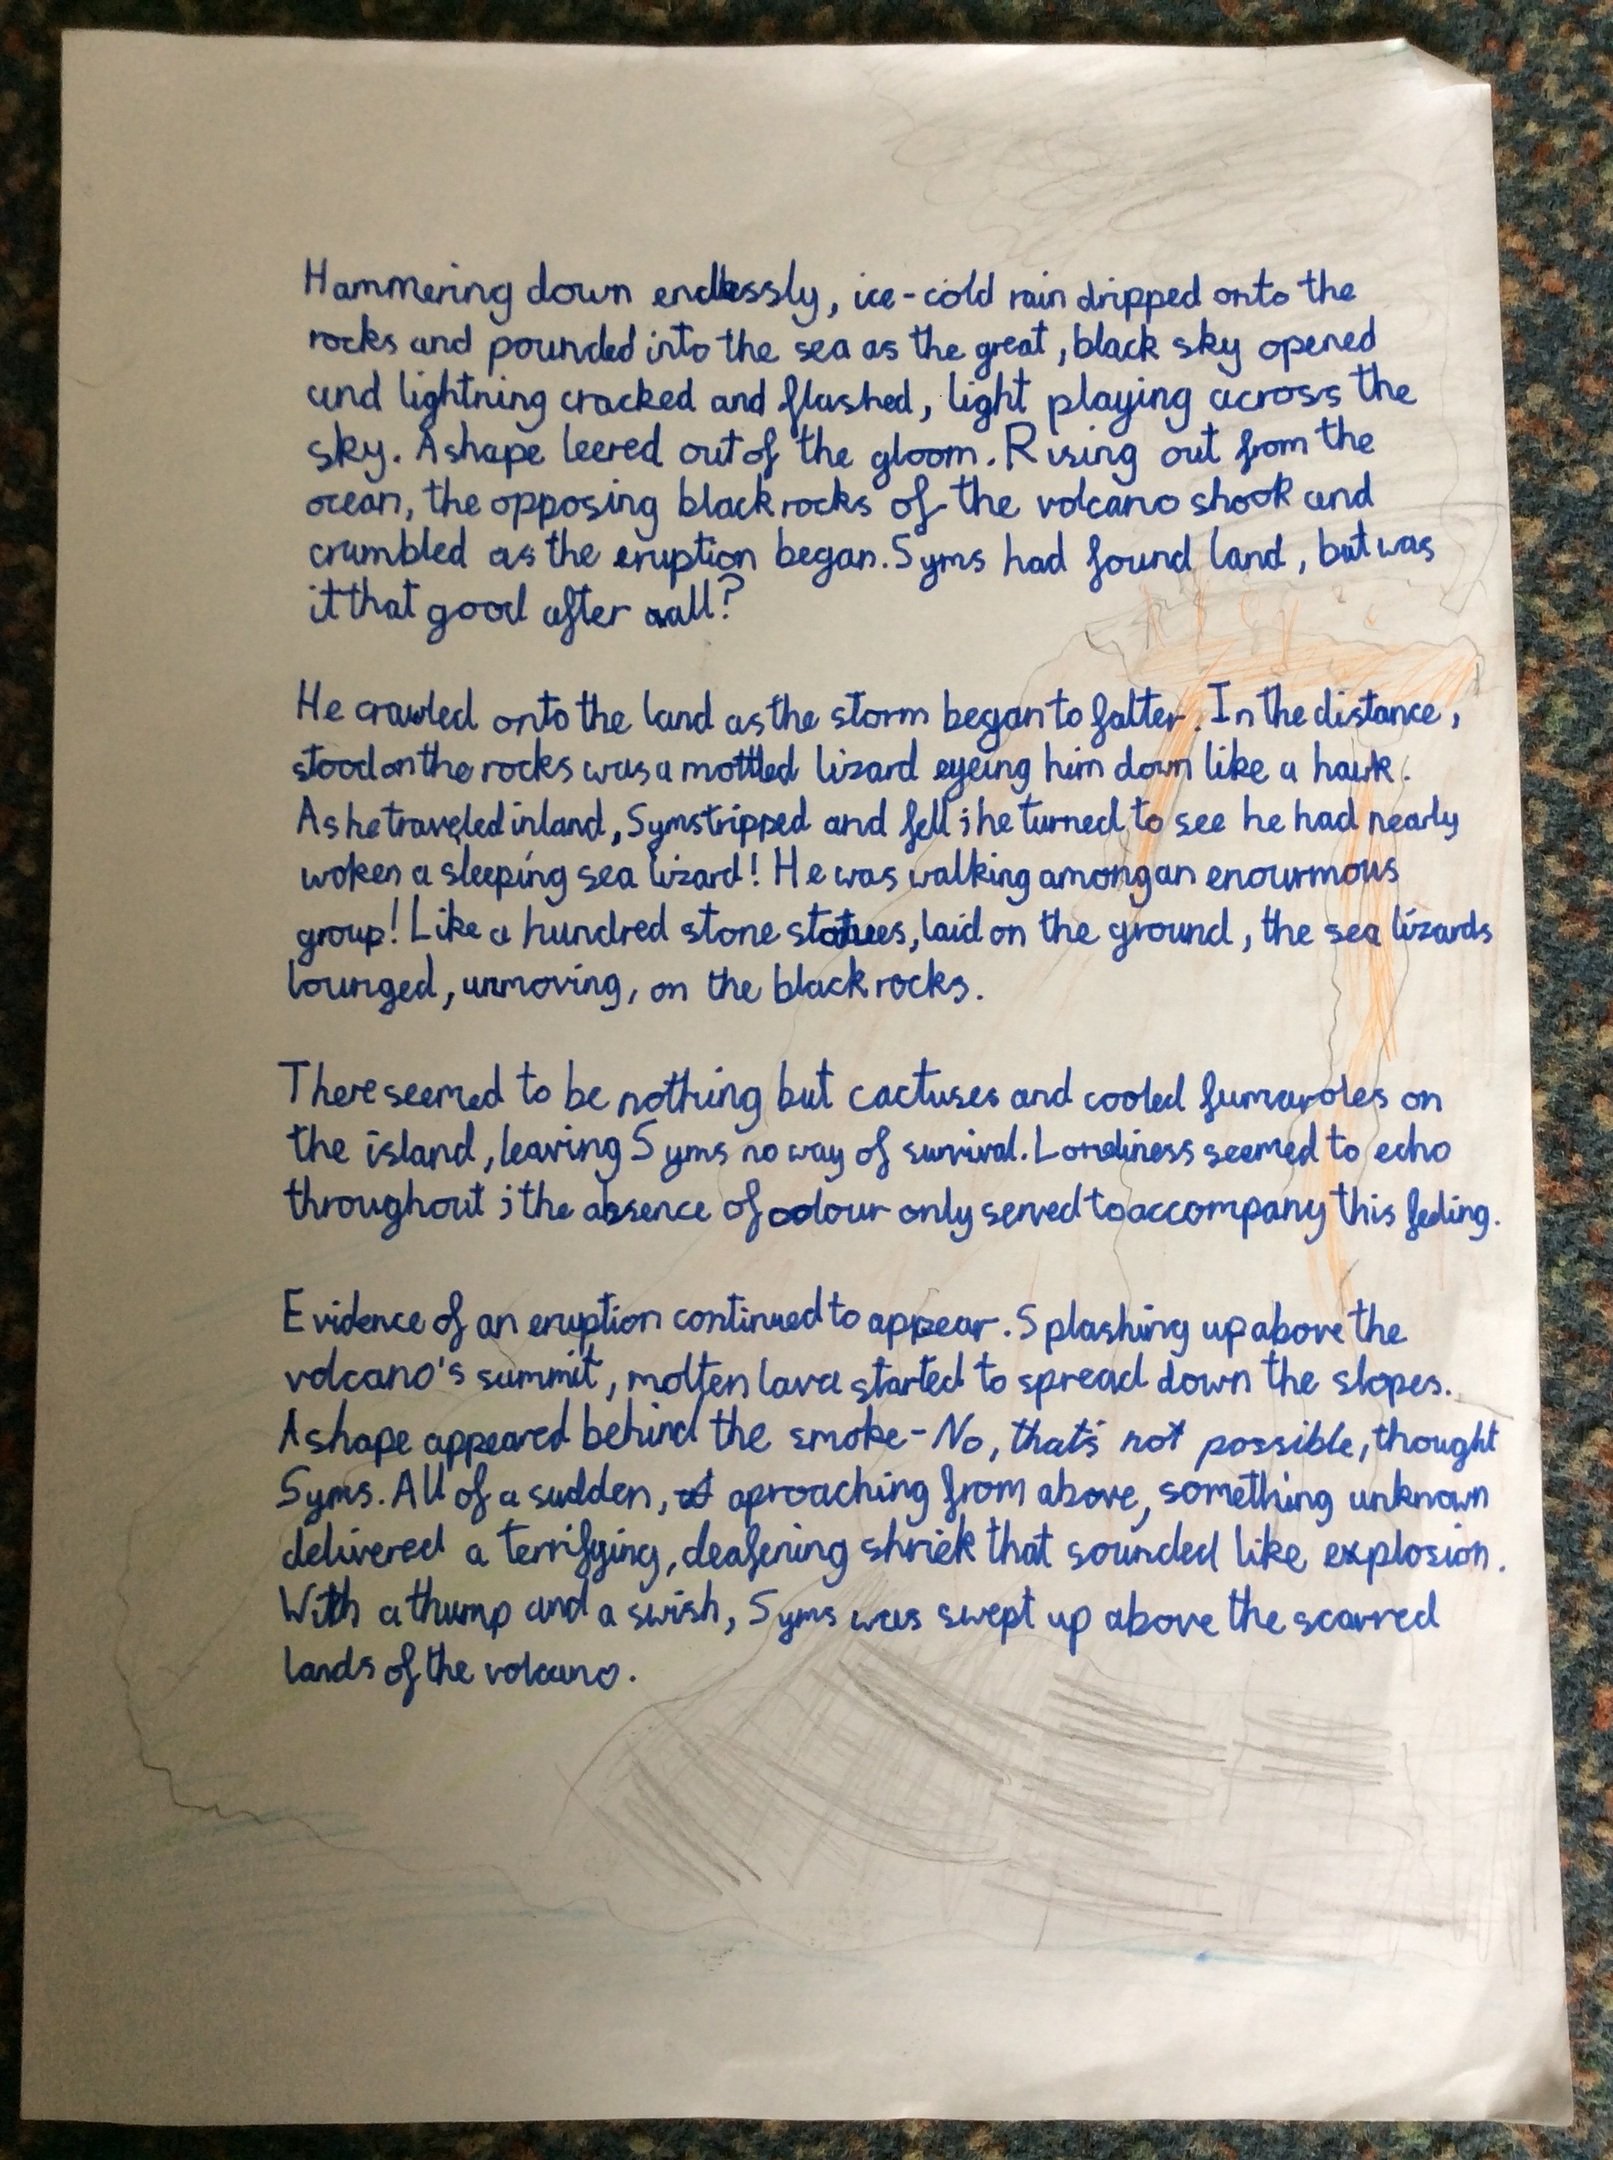 Hammering down endlessly, ice-cold rain dripped onto the
rocks and pounded into the sea as the great, black sky opened
and lightning cracked and flashed, light playing across the
sky. A shape leered out of the gloom. Rising out from the
ocean, the opposing black rocks of the volcano shook and
crumbled as the eruption began. Syms had found land, but was
it that good after all?
He crawled onto the land as the storm began to falter. In the distance,
stood on the rocks was a mottled lizard eyeing him down like a hawk.
As he traveled inland, Syms tripped and fell; he turned to see he had nearly
woken a sleeping sea lizard! He was walking among an enourmous
group! Like a hundred stone statues, laid on the ground, the sea lizards
lounged, unmoving, on the black rocks.
There seemed to be nothing but cactuses and cooled fumaroles on
the island, leaving Syms no way of survival. Loneliness seemed to echo
throughout; the absence of colour only served to accompany this feeling.
Evidence of an eruption continued to appear. Splashing up above the
volcano's summit, molten lava started to spread down the slopes.
A shape appeared behind the smoke-No, that's not possible, thought
Syms. All of a sudden, aproaching from above, something unknown
delivered a terrifying, deafening shriek that sounded like explosion.
With a thump and a swish, Syms was swept up above the scarred
lands of the volcano.